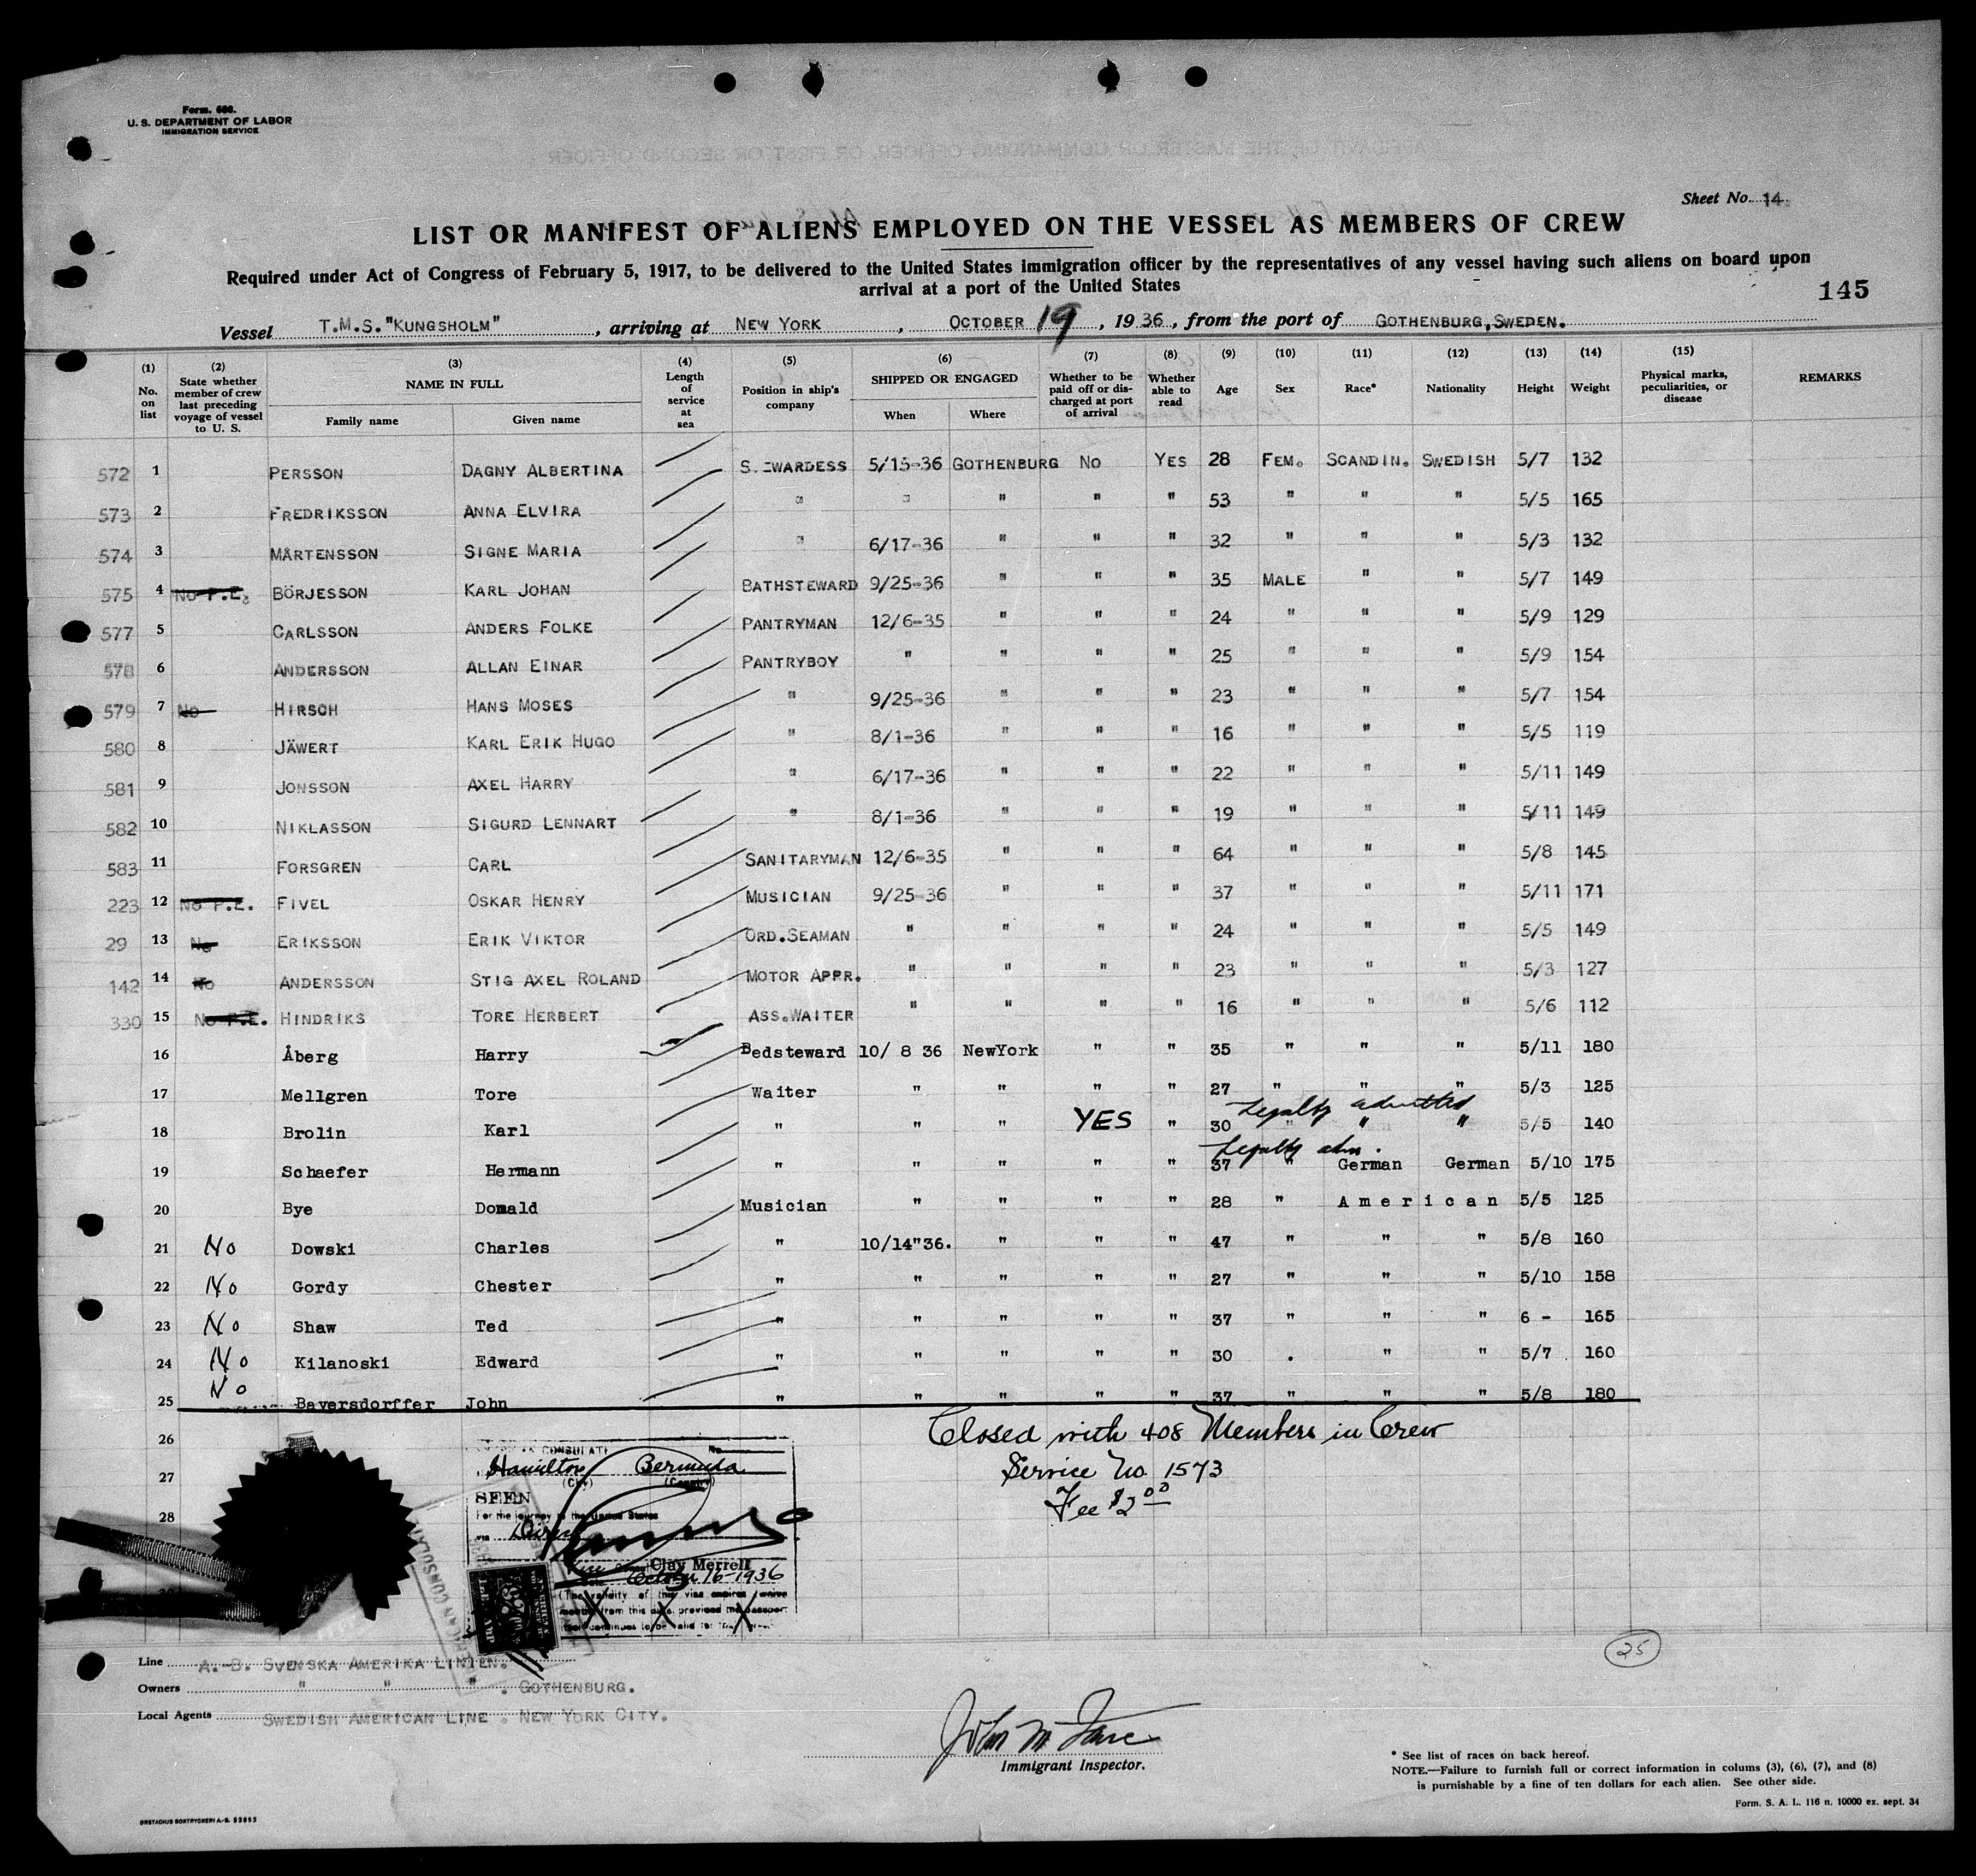 Form. 680.
U. S. DEPARTMENT OF LABOR
IMMIGRATION SERVICE
Sheet No. 14.
LIST OR MANIFEST OF ALIENS EMPLOYED ON THE VESSEL AS MEMBERS OF CREW
Required under Act of Congress of February 5, 1917, to be delivered to the United States immigration officer by the representatives of any vessel having such aliens on board upon
arrival at a port of the United States
145
Vessel T.M.S. "KUNGSHOLM", arriving at NEW YORK, OCTOBER 19, 1936, from the port of GOTHENBURG, SWEDEN.
(1) No. on list (2) State whether member of crew last preceding voyage of vessel to U. S. (3) NAME IN FULL Family name Given name (4) Length of service at sea (5) Position in ship's company (6) SHIPPED OR ENGAGED When Where (7) Whether to be paid off or discharged at port of arrival (8) Whether able to read (9) Age (10) Sex (11) Race* (12) Nationality (13) Height (14) Weight (15) Physical marks, peculiarities, or disease REMARKS
572 1 PERSSON DAGNY ALBERTINA STEWARDESS 5/15-36 GOTHENBURG NO YES 28 FEM. SCANDIN. SWEDISH 5/7 132
573 2 FREDRIKSSON ANNA ELVIRA " " " " " 53 " " " 5/5 165
574 3 MÅRTENSSON SIGNE MARIA " 6/17-36 " " " 32 " " " 5/3 132
575 4 NO P.E. BÖRJESSON KARL JOHAN BATHSTEWARD 9/25-36 " " " 35 MALE " " 5/7 149
577 5 CARLSSON ANDERS FOLKE PANTRYMAN 12/6-35 " " " 24 " " " 5/9 129
578 6 ANDERSSON ALLAN EINAR PANTRYBOY " " " " 25 " " " 5/9 154
579 7 NO HIRSCH HANS MOSES " 9/25-36 " " " 23 " " " 5/7 154
580 8 JÄWERT KARL ERIK HUGO " 8/1-36 " " " 16 " " " 5/5 119
581 9 JONSSON AXEL HARRY " 6/17-36 " " " 22 " " " 5/11 149
582 10 NIKLASSON SIGURD LENNART " 8/1-36 " " " 19 " " " 5/11 149
583 11 FORSGREN CARL SANITARYMAN 12/6-35 " " " 64 " " " 5/8 145
223 12 NO P.E. FIVEL OSKAR HENRY MUSICIAN 9/25-36 " " " 37 " " " 5/11 171
29 13 NO ERIKSSON ERIK VIKTOR ORD.SEAMAN " " " " 24 " " " 5/5 149
142 14 NO ANDERSSON STIG AXEL ROLAND MOTOR APPR. " " " " 23 " " " 5/3 127
330 15 NO P.E. HINDRIKS TORE HERBERT ASS.WAITER " " " " 16 " " " 5/6 112
16 Åberg Harry Bedsteward 10/ 8 36 NewYork " " 35 " " " 5/11 180
17 Mellgren Tore Waiter " " " " 27 " " " 5/3 125
Legally admitted
18 Brolin Karl " " " YES " 30 " " " 5/5 140
Legally adm.
19 Schaefer Hermann " " " " " 37 " German German 5/10 175
20 Bye Donald Musician " " " " 28 " American 5/5 125
21 No Dowski Charles " 10/14"36. " " " 47 " " " 5/8 160
22 No Gordy Chester " " " " " 27 " " " 5/10 158
23 No Shaw Ted " " " " " 37 " " " 6 - 165
24 No Kilanoski Edward " " " " " 30 . " " 5/7 160
25 No Bayersdorffer John " " " " " 37 " " " 5/8 180
26
Closed with 408 Members in Crew
27
Service No. 1573
28
Fee $2.00
CONSULATE No.
Hamilton Bermuda
(City) (Country)
SEEN
For the journey to the United States
via
Clay Merrell
October 16-1936
(The validity of this visa expires twelve
months from this date, provided the passport
continues to be valid for
AMERICAN CONSULATE
25
Line A.-B. SVENSKA AMERIKA LINIEN.
Owners " " " . GOTHENBURG.
Local Agents SWEDISH AMERICAN LINE . NEW YORK CITY.
Immigrant Inspector.
* See list of races on back hereof.
NOTE.—Failure to furnish full or correct information in colums (3), (6), (7), and (8)
is punishable by a fine of ten dollars for each alien. See other side.
Form. S. A. L. 116 n. 10000 ex. sept. 34